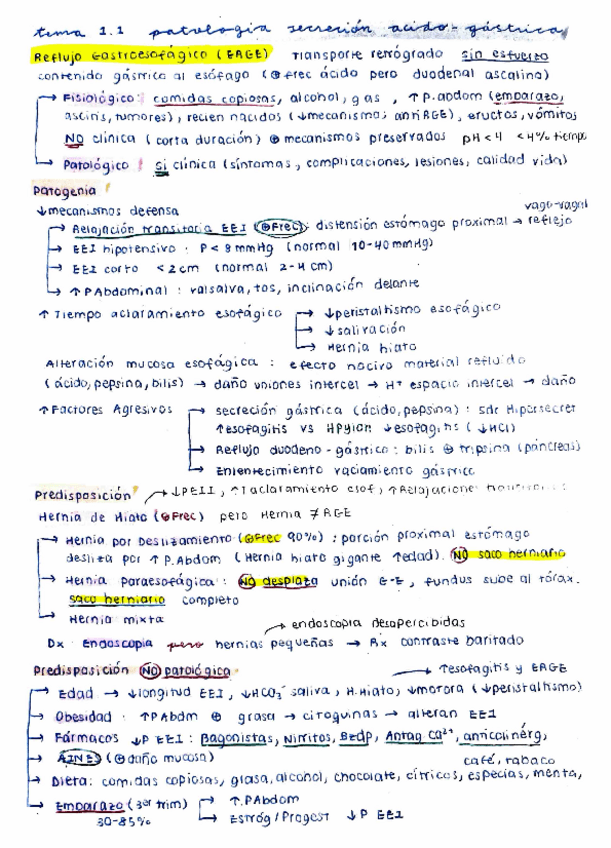 tema 1.1 patologia secreción acido-gástrica
Reflujo Gastroesofágico (ERGE) Transporte retrógrado sin esfuerzo
contenido gásmico al esófago (⊕frec ácido pero duodenal ascalino)
→ Fisiológico: comidas copiosas, alcohol, gas, ↑P.abdom (embarazo,
ascitis, tumores), recien nacidos (↓mecanismos antiRGE), eructos, vómitos
NO clinica (corta duración) ⊕ mecanismos preservados pH<4 <4% tiempo
→ Patológico: si clinica (síntomas, complicaciones, lesiones, calidad vida)
Patogenia
↓mecanismos defensa
vago-vagal
→ Relajación transitoria EEI (⊕Frec): distensión estómago proximal → reflejo
→ EEI hipotensivo: P<8mmHg (normal 10-40mmHg)
→ EEI corto <2cm (normal 2-4cm)
→ ↑PAbdominal: valsalva, tos, inclinación delante
↑Tiempo aclaramiento esofágico → ↓peristaltismo esofágico
→ ↓salivación
→ Hernia hiato
Alteración mucosa esofágica: efecto nocivo material refluido
(ácido, pepsina, bilis) → daño uniones intercel → H⁺ espacio intercel → daño
↑Factores Agresivos → secreción gástrica (ácido, pepsina): sdr Hipersecret
↑esofagitis vs HPylori ↓esofagitis (↓HCl)
→ Reflujo duodeno-gástrico: bilis ⊕ tripsina (páncreas)
→ Enlentecimiento vaciamiento gástrico
Predisposición → ↓PEII, ↑Taclaramiento esof, ↑Relajacione
Hernia de Hiato (⊕Frec) pero Hernia ≠ RGE
→ Hernia por Deslizamiento (⊕Frec 90%): porción proximal estómago
desliza por ↑P.Abdom (Hernia hiato gigante ↑edad). NO saco herniario
→ Hernia paraesofágica: NO desplaza unión G-E, fundus sube al tórax.
saco herniario completo
→ Hernia mixta
→ endoscopia desapercibidas
Dx Endoscopia pero hernias pequeñas → Rx contraste baritado
Predisposición NO patológica → ↑esofagitis y ERGE
→ Edad → ↓longitud EEI, ↓HCO₃⁻ saliva, H.Hiato, ↓motora (↓peristaltismo)
→ Obesidad: ↑PAbdm ⊕ grasa → citoquinas → alteran EEI
→ Fármacos ↓P EEI: Bagonistas, Nitritos, Bzdp, Antag Ca²⁺, anticolinérg,
→ AINES (⊕daño mucosa) café, tabaco
→ Dieta: comidas copiosas, grasa, alcohol, chocolate, cítricos, especias, menta,
→ Embarazo (3er trim) → ↑.PAbdom
30-85% → Estróg/Progest ↓P EEI